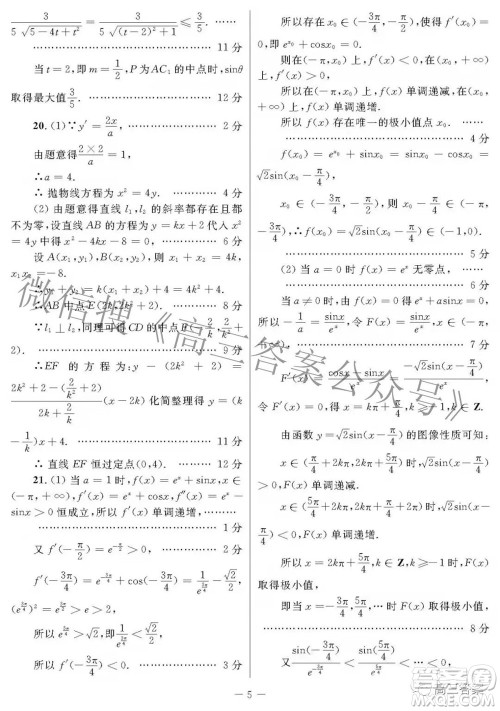 3/(5√(5-4t+t²)) = 3/(5√((t-2)²+1)) ≤ 3/5. ……
…… 11 分
当 t=2,即 m=1/2,P为AC₁的中点时,sinθ
取得最大值3/5. …… 12 分
20.(1)∵y′=2x/a, …… 2 分
由题意得(2×2)/a=1,
∴a=4.
∴ 抛物线方程为 x²=4y. …… 4 分
(2) 由题意得直线 l₁,l₂ 的斜率都存在且都
不为零,设直线 AB 的方程为 y=kx+2 代入 x²
=4y 得 x²-4kx-8=0. …… 6 分
设 A(x₁,y₁),B(x₂,y₂),则 x₁+x₂=4k,
x₁x₂=-8.
∴y₁+y₂=k(x₁+x₂)+4=4k²+4,
∴AB 中点 E(2k,2k²+2). …… 8 分
∵l₁⊥l₂,同理可得CD的中点
). …… 9 分
∴EF 的方程为:y-(2k²+2)=
(2k²+2-(2/k²+2))/(2k+2/k)(x-2k) 化简整理得 y=(k
-1/k)x+4. …… 11 分
∴ 直线 EF 恒过定点(0,4). …… 12 分
21.(1) 当 a=1 时,f(x)=eˣ+sinx,x∈
(-π,+∞),f′(x)=eˣ+cosx,f″(x)=eˣ-
sinx>0 恒成立,所以 f′(x) 单调递增, ……
…… 1 分
又 f′(-π/2)>0, …… 2 分
f′(-3π/4)=
+cos(-3π/4)=
-√2/2,
>e>2,
所以
…… 3 分
所以 f′(-3π/4)<0. …… 3 分
所以存在 x₀∈(-3π/4,-π/2),使得 f′(x₀)
=0,即
+cosx₀=0.
所以在(-π,x₀) 上,f′(x)<0,在(x₀,+
∞) 上,f′(x)>0,
所以在(-π,x₀) 上,f(x) 单调递减,在(x₀,
+∞) 上,f(x) 单调递增.
所以 f(x) 存在唯一的极小值点 x₀. ……
…… 4 分
+sinx₀=sinx₀-cosx₀=
√2sin(x₀-π/4),x₀∈(-3π/4,-π/2),则 x₀-π/4∈(-π,
-3π/4),∴f(x₀)=√2sin(x₀-π/4)∈(-1,0).
…… 5 分
(2) 当 a=0 时 f(x)=eˣ 无零点,……
…… 6 分
∴a≠0,由 f(x)=0 得 eˣ+asinx=0,
即-1/a=sinx/eˣ,令 F(x)=sinx/eˣ,x∈(-π,+∞).
F′(x)=(cosx-sinx)/eˣ=-√2sin(x-π/4)/eˣ,
令 F′(x)=0,得 x=kπ+π/4,k≥-1,k∈Z.
由函数 y=√2sin(x-π/4) 的图像性质可知:
x∈(π/4+2kπ,5π/4+2kπ) 时,√2sin(x-π/4)>0,
F(x) 单调递减.
x∈(5π/4+2kπ,
+2kπ) 时,√2sin(x-
π/4)<0,F(x) 单调递增.
所以,x=2kπ+5π/4,k∈Z,k≥-1 时,F(x)
取得极小值,
即当 x=-3π/4,5π/4,…时 F(x) 取得极小值,
…… 8 分
又
<…<0,
— 5 —
微信搜《高三答案公众号》
高三答案